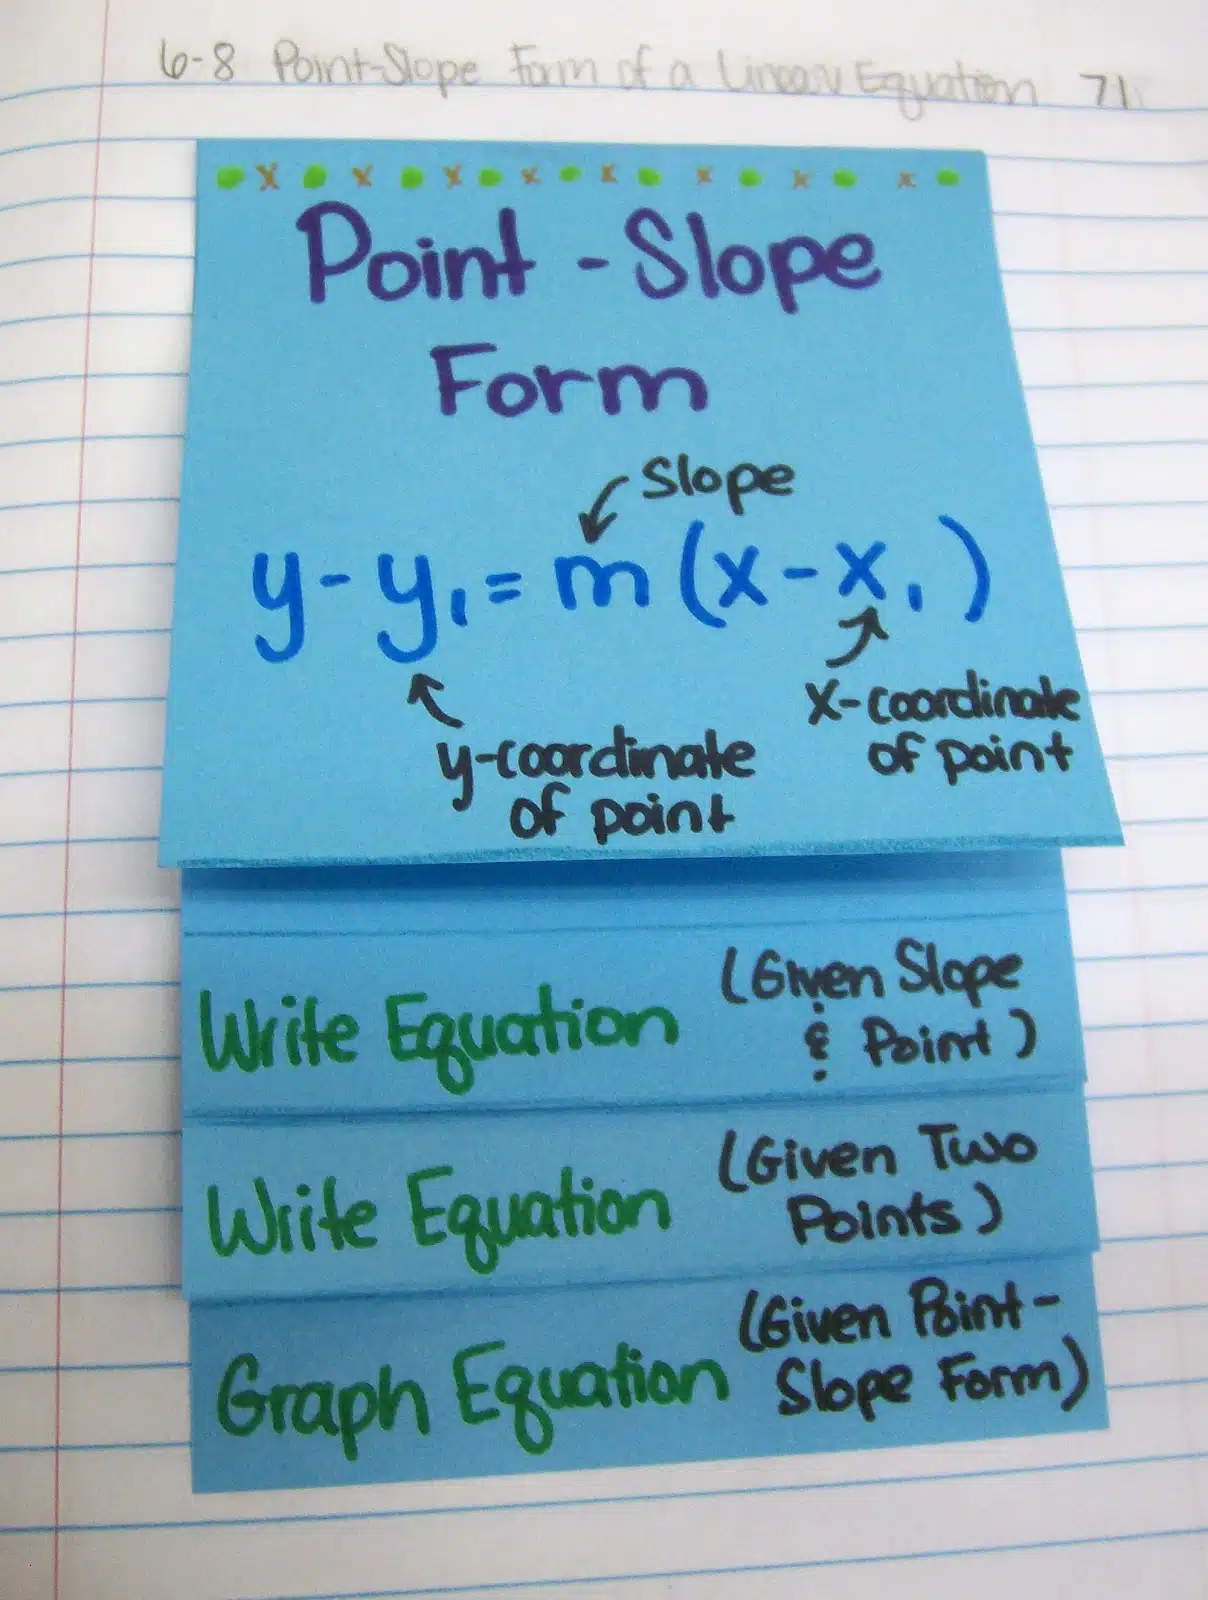 6-8 Point-Slope Form of a Linear Equation 71
Point - Slope
Form
Slope
y - y₁ = m (x - x₁)
x-coordinate
of point
y-coordinate
of point
Write Equation (Given Slope
& Point)
Write Equation (Given Two
Points)
Graph Equation (Given Point-
Slope Form)